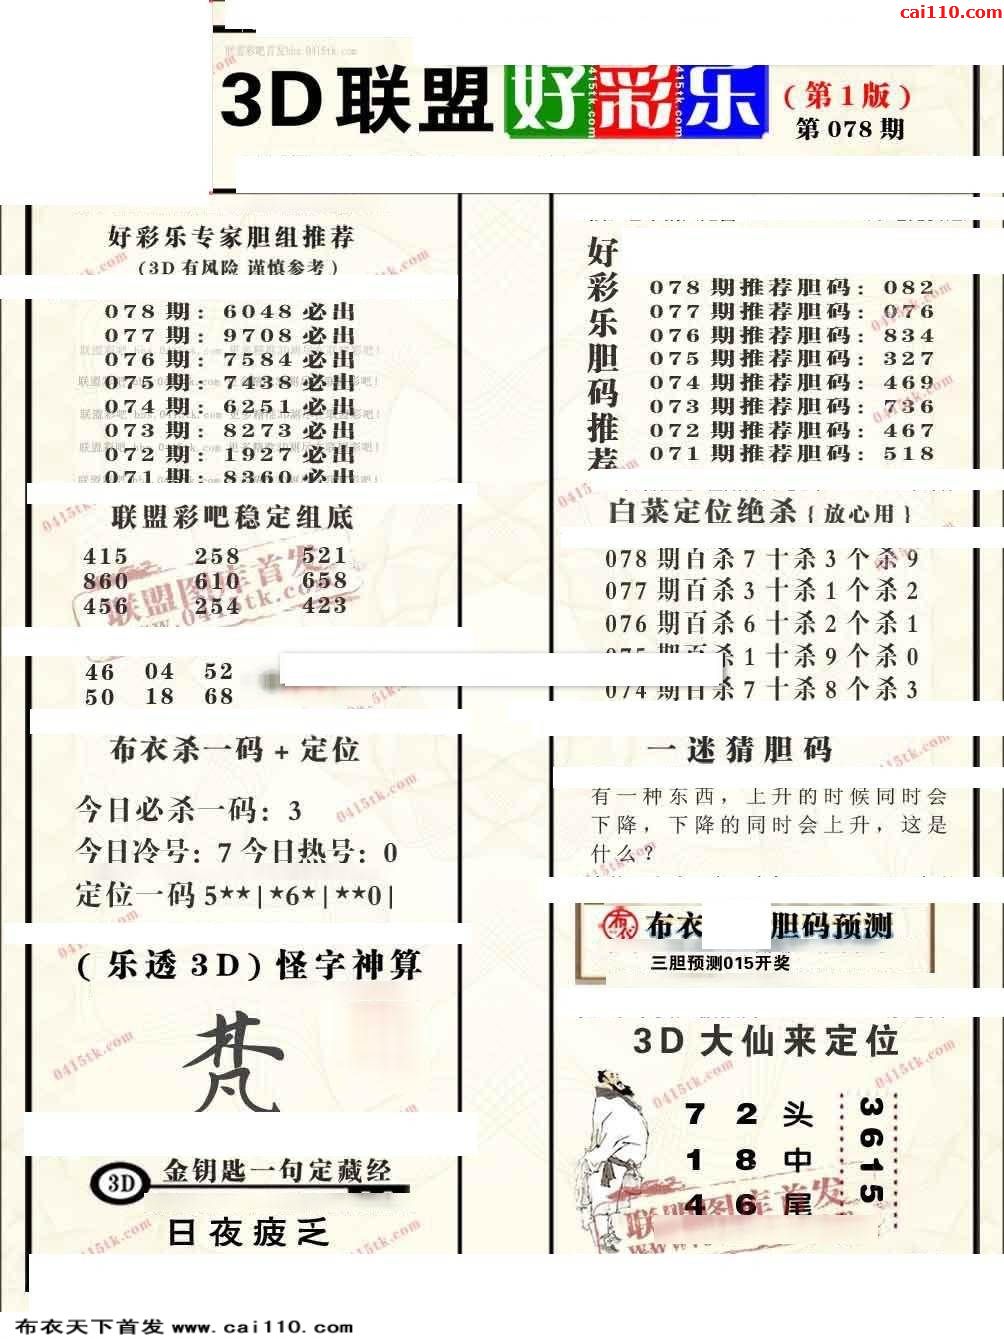 cai110.com
3D联盟好彩乐(第1版)
第078期
好彩乐专家胆组推荐
(3D有风险 谨慎参考)
078期: 6048必出
077期: 9708必出
076期: 7584必出
075期: 7438必出
074期: 6251必出
073期: 8273必出
072期: 1927必出
071期: 8360必出
联盟彩吧稳定组底
415 258 521
860 610 658
456 254 423
46 04 52
50 18 68
布衣杀一码+定位
今日必杀一码: 3
今日冷号: 7 今日热号: 0
定位一码5**|*6*|**0|
(乐透3D)怪字神算
梵
3D 金钥匙一句定藏经
日夜疲乏
好彩乐胆码推荐
078期推荐胆码: 082
077期推荐胆码: 076
076期推荐胆码: 834
075期推荐胆码: 327
074期推荐胆码: 469
073期推荐胆码: 736
072期推荐胆码: 467
071期推荐胆码: 518
白菜定位绝杀{放心用}
078期百杀7十杀3个杀9
077期百杀3十杀1个杀2
076期百杀6十杀2个杀1
075期百杀1十杀9个杀0
074期百杀7十杀8个杀3
一迷猜胆码
有一种东西，上升的时候同时会
下降，下降的同时会上升，这是
什么？
布衣 胆码预测
三胆预测015开奖
3D大仙来定位
7 2 头
1 8 中
4 6 尾
3615
布衣天下首发 www.cai110.com